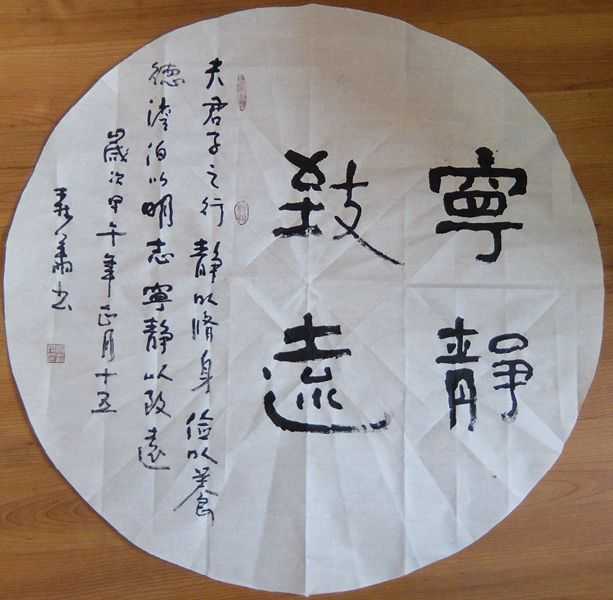 寧靜
致遠
夫君子之行靜以脩身儉以養
德澹泊以明志寧靜以致遠
歲次甲午年正月十五